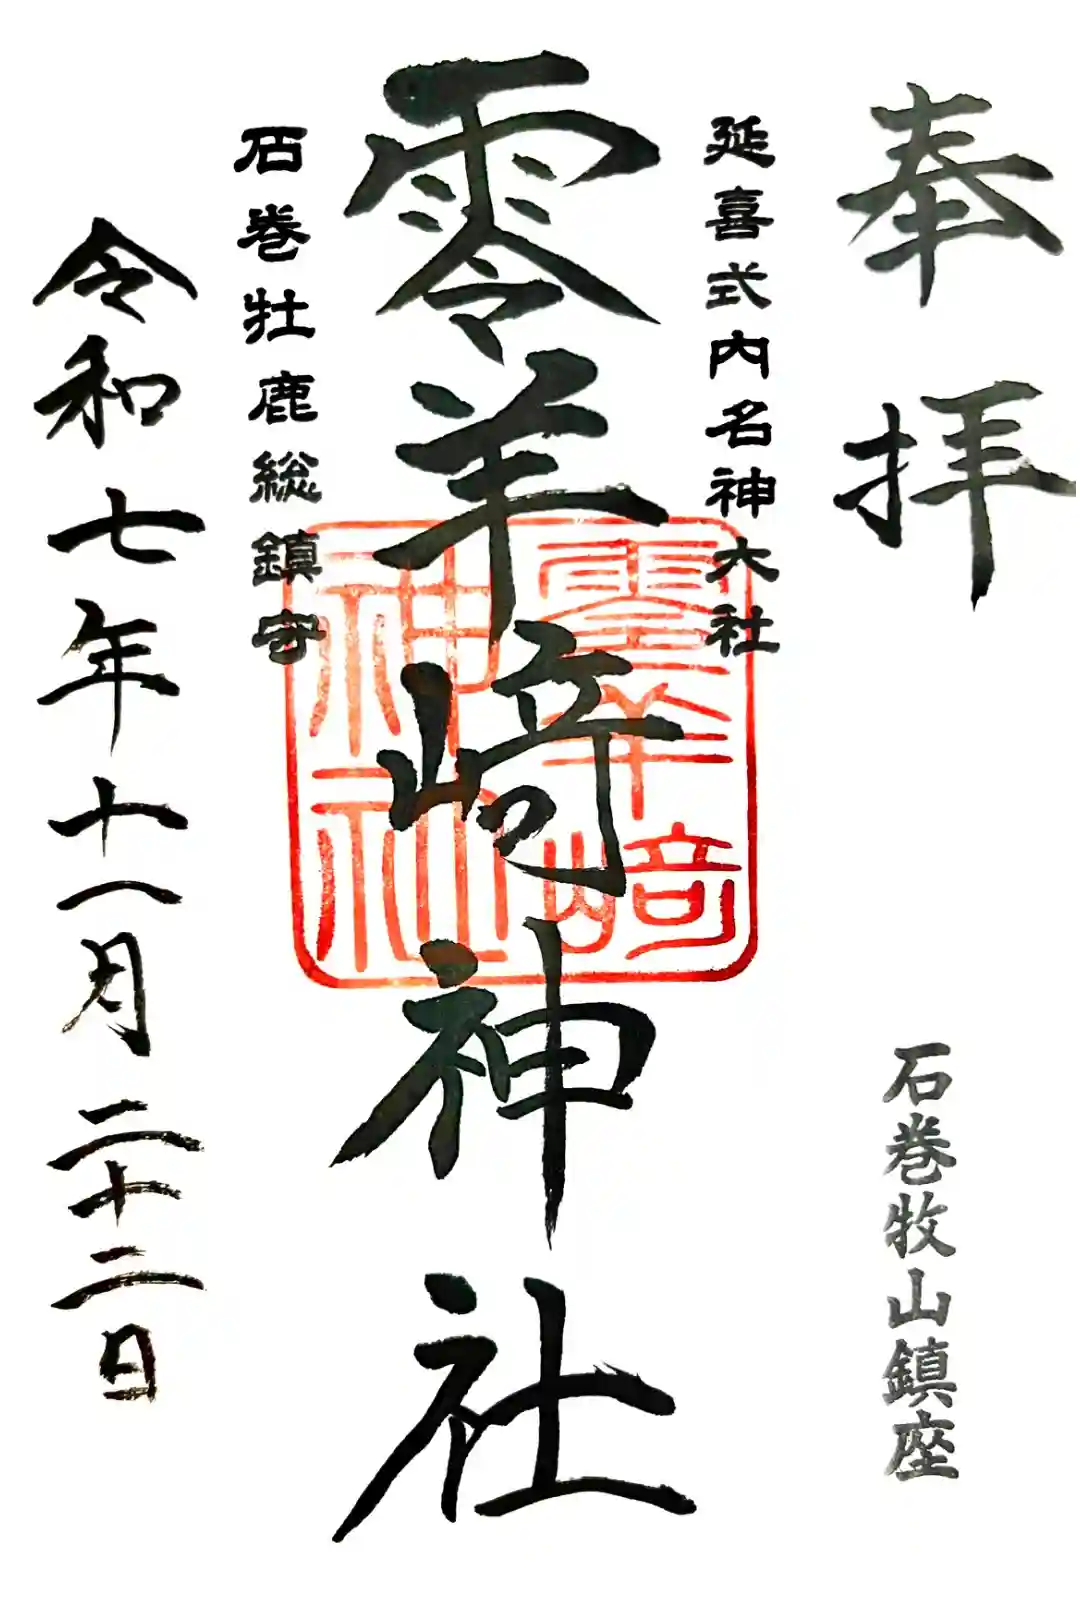 奉拝
石巻牧山鎮座
延喜式内名神大社
零羊﨑神社
石巻牡鹿総鎮守
令和七年十一月二十二日
零羊﨑
神社